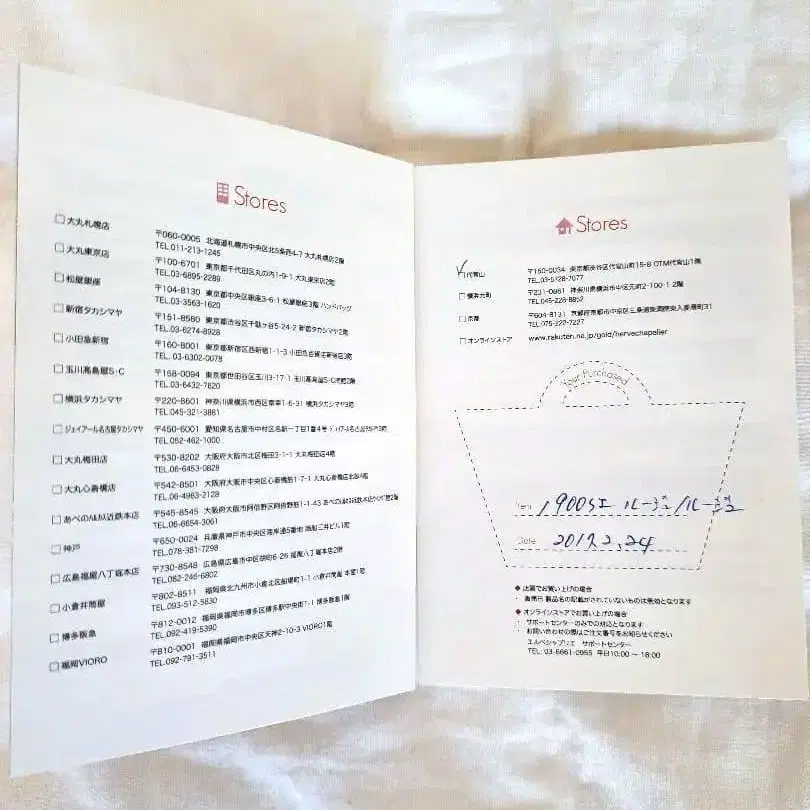 Stores
大丸札幌店
〒060-0005 北海道札幌市中央区北5条西4-7 大丸札幌店2階
TEL.011-213-1245
大丸東京店
〒100-6701 東京都千代田区丸の内1-9-1 大丸東京店2階
TEL.03-6895-2289
松屋銀座
〒104-8130 東京都中央区銀座3-6-1 松屋銀座3階 ハンドバッグ
TEL.03-3563-1620
新宿タカシマヤ
〒151-8580 東京都渋谷区千駄ヶ谷5-24-2 新宿タカシマヤ2階
TEL.03-6274-8928
小田急新宿
〒160-8001 東京都新宿区西新宿1-1-3 小田急百貨店新宿店3階
TEL. 03-6302-0078
玉川髙島屋S・C
〒158-0094 東京都世田谷区玉川3-17-1 玉川髙島屋S・C南館2階
TEL.03-6432-7820
横浜タカシマヤ
〒220-8601 神奈川県横浜市西区南幸1-6-31 横浜タカシマヤ3階
TEL.045-321-3881
ジェイアール名古屋タカシマヤ
〒450-6001 愛知県名古屋市中村区名駅一丁目1番4号
TEL.052-462-1000
大丸梅田店
〒530-8202 大阪府大阪市北区梅田3-1-1 大丸梅田店4階
TEL.06-6453-0829
大丸心斎橋店
〒542-8501 大阪府大阪市中央区心斎橋筋1-7-1 大丸心斎橋店北館4階
TEL.06-4963-2128
あべのハルカス近鉄本店
〒545-8545 大阪府大阪市阿倍野区阿倍野筋1-1-43 あべのハルカス近鉄本店2階
TEL.06-6654-3061
神戸
〒650-0024 兵庫県神戸市中央区海岸通5番地 商船三井ビル1階
TEL.078-381-7298
広島福屋八丁堀本店
〒730-8548 広島県広島市中区胡町6-26 福屋八丁堀本店2階
TEL.082-246-6802
小倉井筒屋
〒802-8511 福岡県北九州市小倉北区船場町1-1 小倉井筒屋 本館1階
TEL.093-512-5830
博多阪急
〒812-0012 福岡県福岡市博多区博多駅中央街1-1 博多阪急1階
TEL.092-419-5390
福岡VIORO
〒810-0001 福岡県福岡市中央区天神2-10-3 VIORO1階
TEL.092-791-3511
Stores
代官山
〒150-0034 東京都渋谷区代官山町15-8 OTM代官山1階
TEL.03-5728-7077
横浜元町
〒231-0861 神奈川県横浜市中区元町2-100-1 2階
TEL.045-228-8852
京都
〒604-8131 京都府京都市中京区三条通柳馬場東入菱屋町31
TEL.075-222-7227
オンラインストア
www.rakuten.ne.jp/gold/hervechapelier
Your Purchased
Item
Date 2017.2.24
◆ 店頭でお買い上げの場合
・ 販売日 製品名の記載がされていないものは無効となります
◆ オンラインストアでお買い上げの場合
・ サポートセンターのみでの対応となります
・ お問い合わせの際はご注文番号をお知らせください
エルベシャプリエ サポートセンター
TEL: 03-6661-0955 平日10:00 ～ 18:00